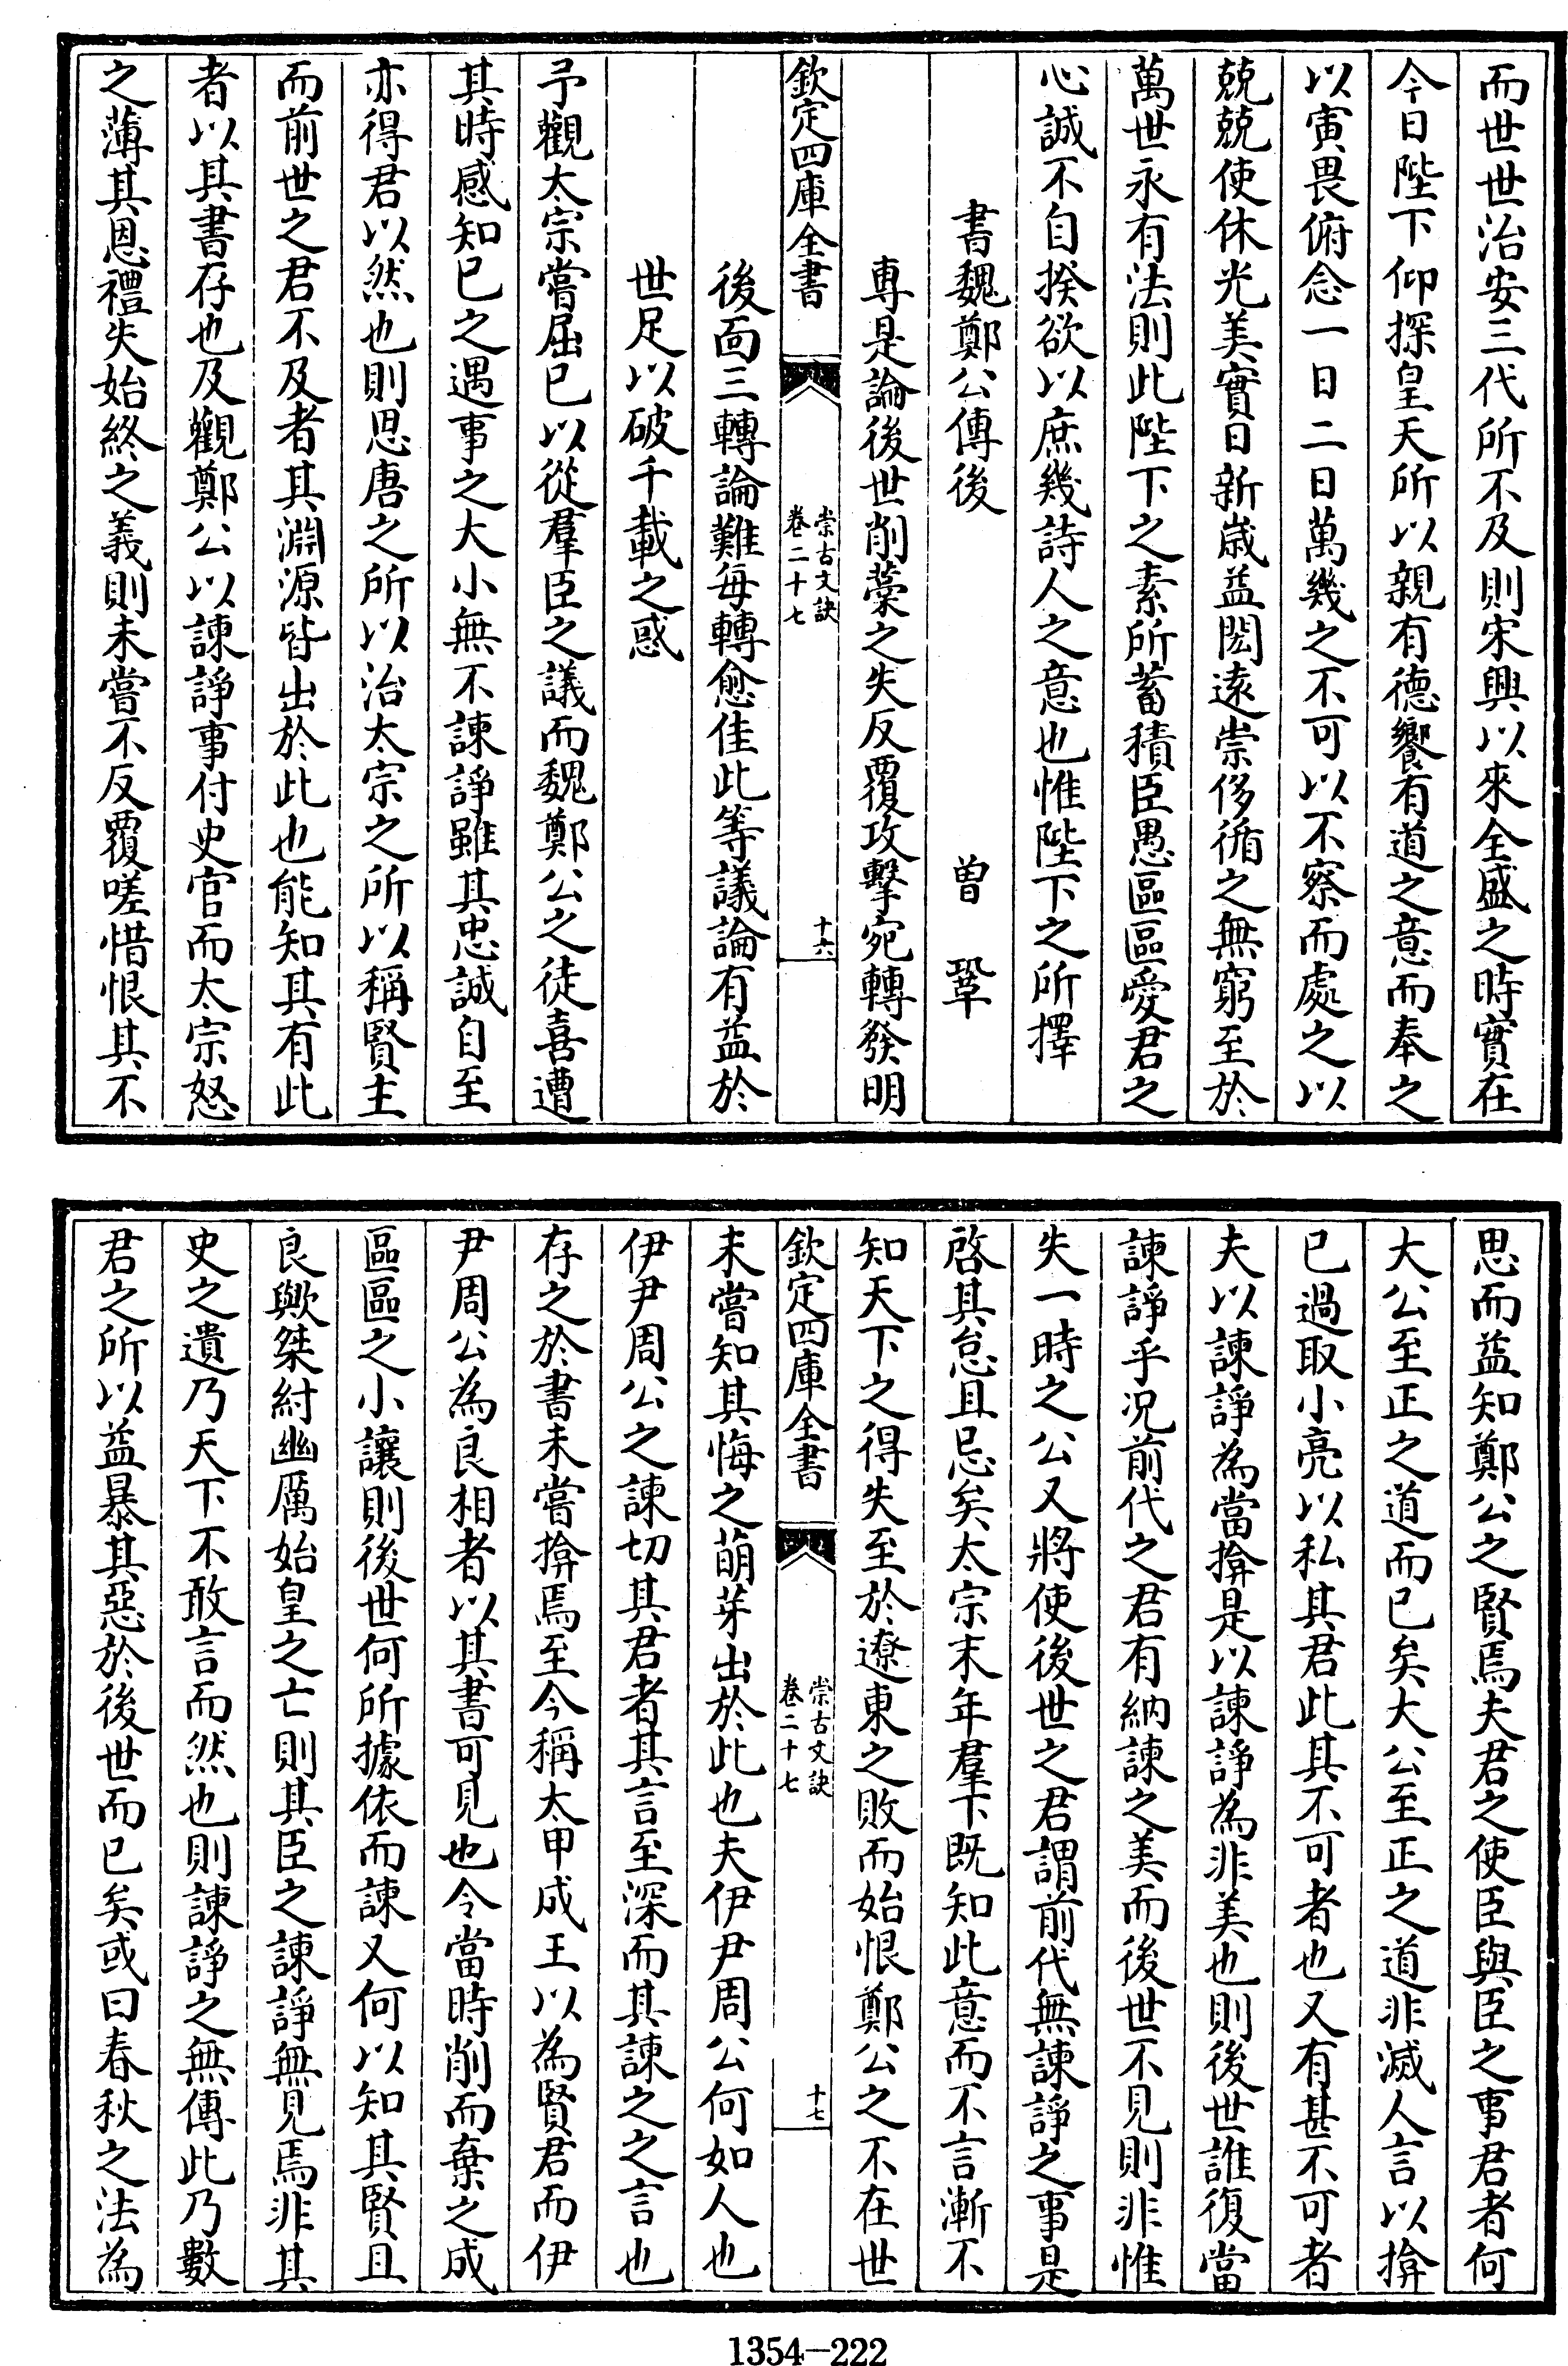 而世世治安三代所不及則宋興以來全盛之時實在
今日陛下仰探皇天所以親有德饗有道之意而奉之
以寅畏俯念一日二日萬幾之不可以不察而處之以
兢兢使休光美實日新歲益閎遠崇侈循之無窮至於
萬世永有法則此陛下之素所蓄積臣愚區區愛君之
心誠不自揆欲以庶幾詩人之意也惟陛下之所擇
書魏鄭公傳後 曾鞏
專是論後世削藁之失反覆攻擊宛轉發明
欽定四庫全書 崇古文訣 卷二十七 十六
後面三轉論難每轉愈佳此等議論有益於
世足以破千載之惑
予觀太宗嘗屈已以從羣臣之議而魏鄭公之徒喜遭
其時感知已之遇事之大小無不諫諍雖其忠誠自至
亦得君以然也則思唐之所以治太宗之所以稱賢主
而前世之君不及者其淵源皆出於此也能知其有此
者以其書存也及觀鄭公以諫諍事付史官而太宗怒
之薄其恩禮失始終之義則未嘗不反覆嗟惜恨其不
思而益知鄭公之賢焉夫君之使臣與臣之事君者何
大公至正之道而已矣大公至正之道非滅人言以揜
已過取小亮以私其君此其不可者也又有甚不可者
夫以諫諍為當揜是以諫諍為非美也則後世誰復當
諫諍乎况前代之君有納諫之美而後世不見則非惟
失一時之公又將使後世之君謂前代無諫諍之事是
啓其怠且忌矣太宗末年羣下既知此意而不言漸不
知天下之得失至於遼東之敗而始恨鄭公之不在世
欽定四庫全書 崇古文訣 卷二十七 十七
未嘗知其悔之萌芽出於此也夫伊尹周公何如人也
伊尹周公之諫切其君者其言至深而其諫之之言也
存之於書未嘗揜焉至今稱太甲成王以為賢君而伊
尹周公為良相者以其書可見也令當時削而棄之成
區區之小讓則後世何所據依而諫又何以知其賢且
良歟桀紂幽厲始皇之亡則其臣之諫諍無見焉非其
史之遺乃天下不敢言而然也則諫諍之無傳此乃數
君之所以益暴其惡於後世而已矣或曰春秋之法為
1354-222